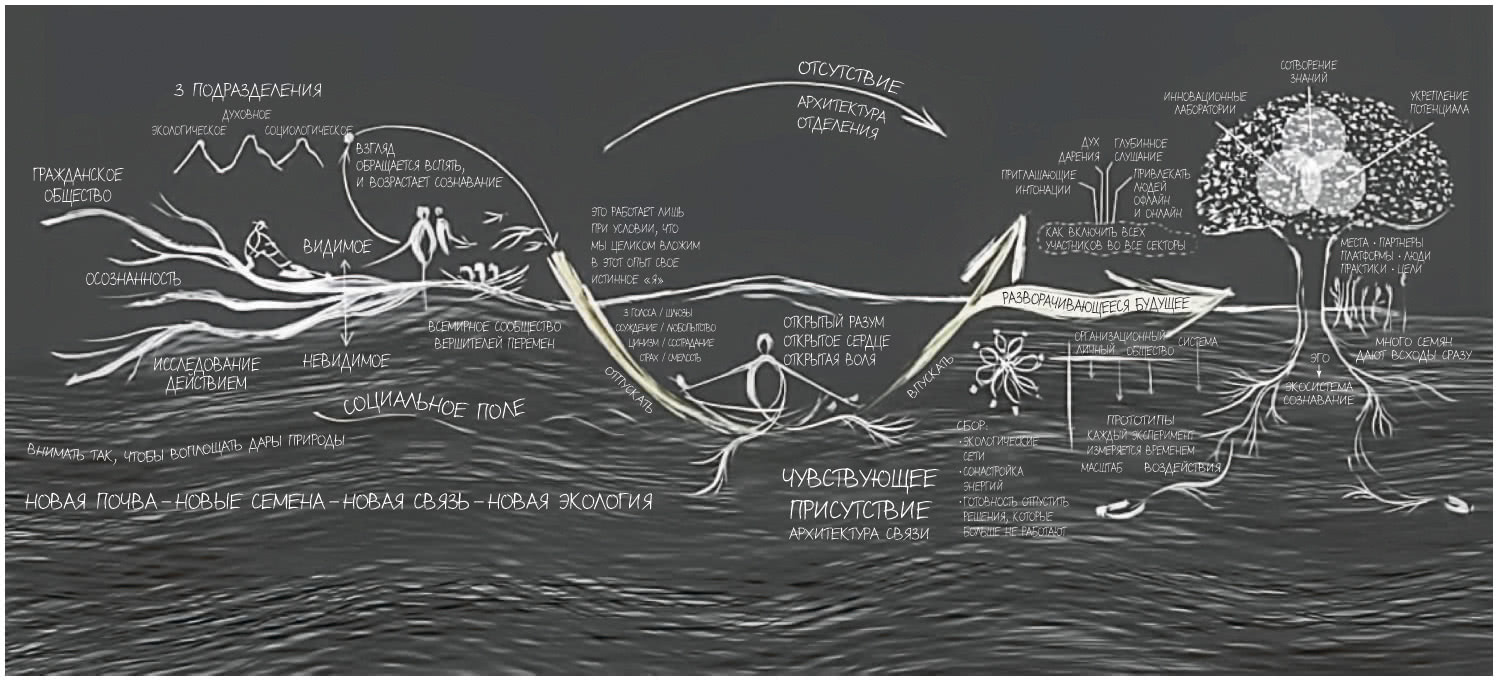 3 ПОДРАЗДЕЛЕНИЯ
ДУХОВНОЕ
ЭКОЛОГИЧЕСКОЕ
СОЦИОЛОГИЧЕСКОЕ
ВЗГЛЯД
ОБРАЩАЕТСЯ ВСПЯТЬ,
И ВОЗРАСТАЕТ СОЗНАВАНИЕ
ГРАЖДАНСКОЕ
ОБЩЕСТВО
ВИДИМОЕ
ОСОЗНАННОСТЬ
НЕВИДИМОЕ
ИССЛЕДОВАНИЕ
ДЕЙСТВИЕМ
ВСЕМИРНОЕ СООБЩЕСТВО
ВЕРШИТЕЛЕЙ ПЕРЕМЕН
СОЦИАЛЬНОЕ ПОЛЕ
ВНИМАТЬ ТАК, ЧТОБЫ ВОПЛОЩАТЬ ДАРЫ ПРИРОДЫ
НОВАЯ ПОЧВА – НОВЫЕ СЕМЕНА – НОВАЯ СВЯЗЬ – НОВАЯ ЭКОЛОГИЯ
ОТСУТСТВИЕ
АРХИТЕКТУРА
ОТДЕЛЕНИЯ
ЭТО РАБОТАЕТ ЛИШЬ
ПРИ УСЛОВИИ, ЧТО
МЫ ЦЕЛИКОМ ВЛОЖИМ
В ЭТОТ ОПЫТ СВОЕ
ИСТИННОЕ «Я»
3 ГОЛОСА / ШЛЮЗЫ
ОСУЖДЕНИЕ / ЛЮБОПЫТСТВО
ЦИНИЗМ / СОСТРАДАНИЕ
СТРАХ / СМЕЛОСТЬ
ОТПУСКАТЬ
ОТКРЫТЫЙ РАЗУМ
ОТКРЫТОЕ СЕРДЦЕ
ОТКРЫТАЯ ВОЛЯ
ВПУСКАТЬ
ЧУВСТВУЮЩЕЕ
ПРИСУТСТВИЕ
АРХИТЕКТУРА СВЯЗИ
СБОР:
· ЭКОЛОГИЧЕСКИЕ
СЕТИ
· СОНАСТРОЙКА
ЭНЕРГИЙ
· ГОТОВНОСТЬ ОТПУСТИТЬ
РЕШЕНИЯ, КОТОРЫЕ
БОЛЬШЕ НЕ РАБОТАЮТ
ДУХ
ДАРЕНИЯ
ГЛУБИННОЕ
СЛУШАНИЕ
ПРИГЛАШАЮЩИЕ
ИНТОНАЦИИ
ПРИВЛЕКАТЬ
ЛЮДЕЙ
ОФЛАЙН
И ОНЛАЙН
КАК ВКЛЮЧИТЬ ВСЕХ
УЧАСТНИКОВ ВО ВСЕ СЕКТОРЫ
РАЗВОРАЧИВАЮЩЕЕСЯ БУДУЩЕЕ
ОРГАНИЗАЦИОННЫЙ
ЛИЧНЫЙ
ОБЩЕСТВО
СИСТЕМА
ПРОТОТИПЫ
КАЖДЫЙ ЭКСПЕРИМЕНТ
ИЗМЕРЯЕТСЯ ВРЕМЕНЕМ
МАСШТАБ ВОЗДЕЙСТВИЯ
СОТВОРЕНИЕ
ЗНАНИЙ
ИННОВАЦИОННЫЕ
ЛАБОРАТОРИИ
УКРЕПЛЕНИЕ
ПОТЕНЦИАЛА
МЕСТА · ПАРТНЕРЫ
ПЛАТФОРМЫ · ЛЮДИ
ПРАКТИКИ · ЦЕЛИ
МНОГО СЕМЯН
ДАЮТ ВСХОДЫ СРАЗУ
ЭГО
ЭКОСИСТЕМА
СОЗНАВАНИЕ